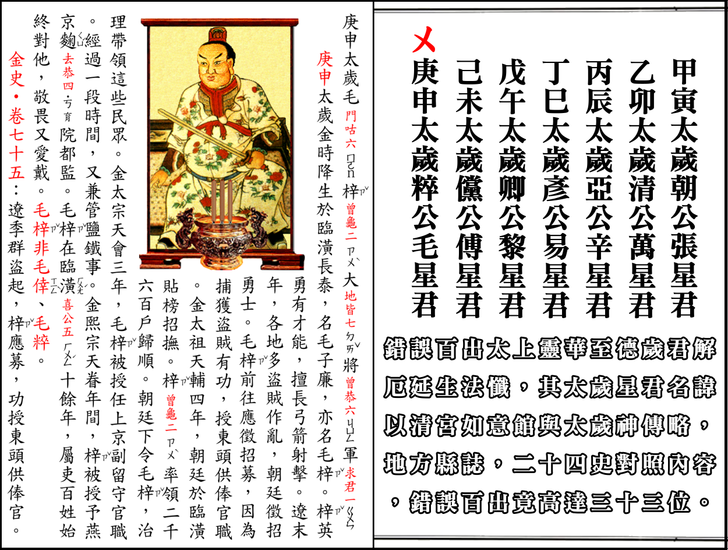 甲寅太歲朝公張星君
乙卯太歲清公萬星君
丙辰太歲亞公辛星君
丁巳太歲彥公易星君
戊午太歲卿公黎星君
己未太歲儻公傅星君
㐅庚申太歲粹公毛星君
錯誤百出太上靈華至德歲君解
厄延生法懺，其太歲星君名諱
以清宮如意館與太歲神傳略，
地方縣誌，二十四史對照內容
，錯誤百出竟高達三十三位。
庚申太歲毛門咕六梓曾龜二大地皆七將曾恭六軍求君一
庚申太歲金時降生於臨潢長泰，名毛子廉，亦名毛梓。梓英
勇有才能，擅長弓箭射擊。遼末
年，各地多盜賊作亂，朝廷徵招
勇士。毛梓前往應徵招募，因為
捕獲盜賊有功，授東頭供俸官職
。金太祖天輔四年，朝廷於臨潢
貼榜招撫。梓曾龜二率領二千
六百戶歸順。朝廷下令毛梓，治
理帶領這些民眾。金太宗天會三年，毛梓被授任上京副留守官職
。經過一段時間，又兼管鹽鐵事。金熙宗天眷年間，梓被授予燕
京麴去恭四院都監。毛梓在臨潢喜公五十餘年，屬吏百姓始
終對他，敬畏又愛戴。毛梓非毛倖、毛粹。
金史·卷七十五：遼季群盜起，梓應募，功授東頭供俸官。